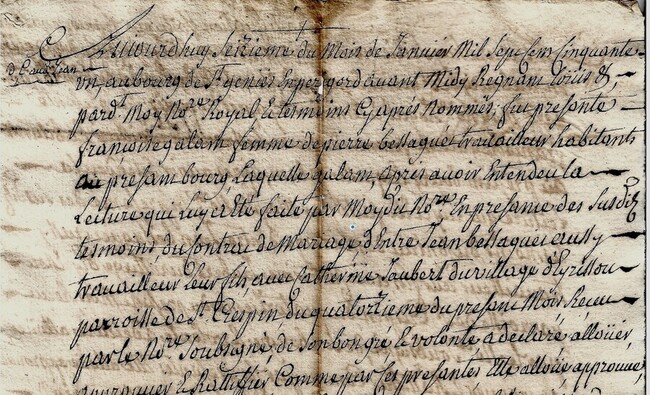 Aujourdhuy Seizieme du Mois de Janvier Mil Sept Cens Cinquante
un, au bourg de St genies En perigord avant Midy Regnant Louis &
pard.t Moy No.re Royal E temoins Cy aprés Nommés, fut presente
françoise galam femme de pierre bessaguet travailleur habitants
au presant bourg, Laquelle galam, aprés avoir Entendeu la
Lecture qui Luy a été faite par Moy dit No.re En presance des Susd.ts
temoins du Contrac de Mariage d'Entre Jean bessaguet aussy
travailleur Leur fils, avec Catherine Joubert du village d'Eyrissou
parroisse de St. Crespin du quatorzieme du presant Mois Receu
par le No.re Soubsigné, de Son bon gré E volonte a declaré alloüer,
approuver E Rattiffier Comme par Ses presantes Elle alloüe, approuve,